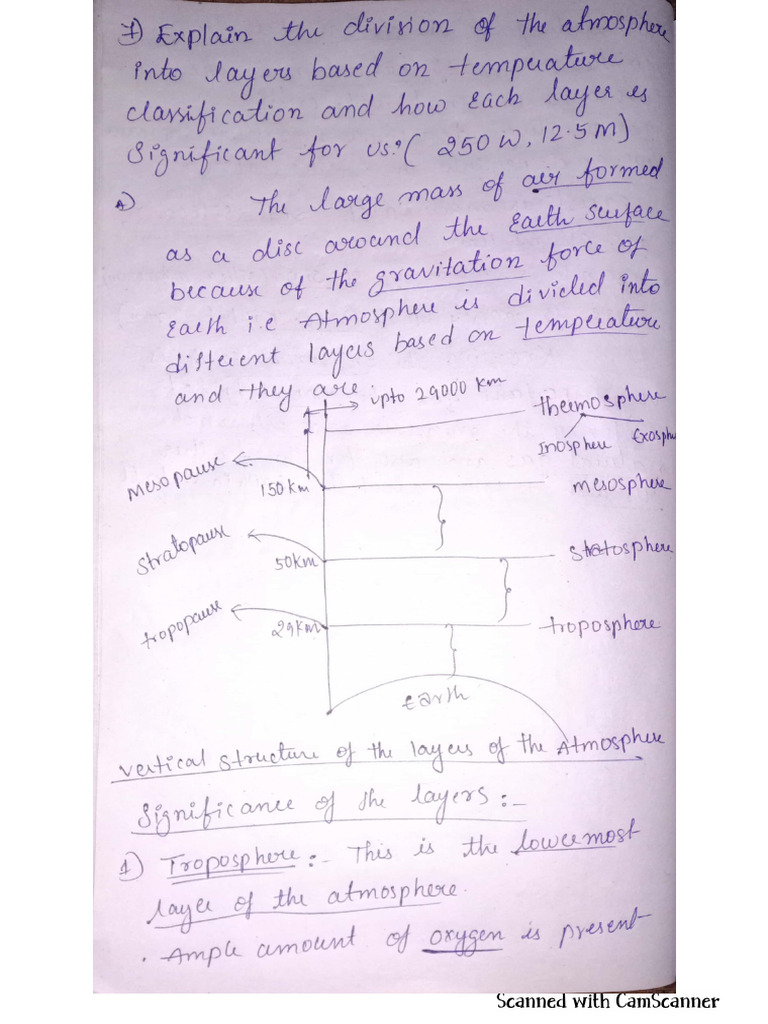 7) Explain the division of the atmosphere
into layers based on temperature
classification and how each layer is
Significant for us? ( 250 W, 12.5 M)
A) The large mass of air formed
as a disc around the Earth surface
because of the gravitation force of
Earth i.e Atmosphere is divided into
different layers based on temperature
and they are
upto 29000 km
thermosphere
Inosphere Exosphe
Mesopause
150 km
mesosphere
Stratopause
50km
Stratosphere
tropopause
29km
troposphere
Earth
Vertical structure of the layers of the Atmosphere
Significance of the layers :-
1) Troposphere :- This is the lowermost
layer of the atmosphere.
. Ample amount of oxygen is present
Scanned with CamScanner